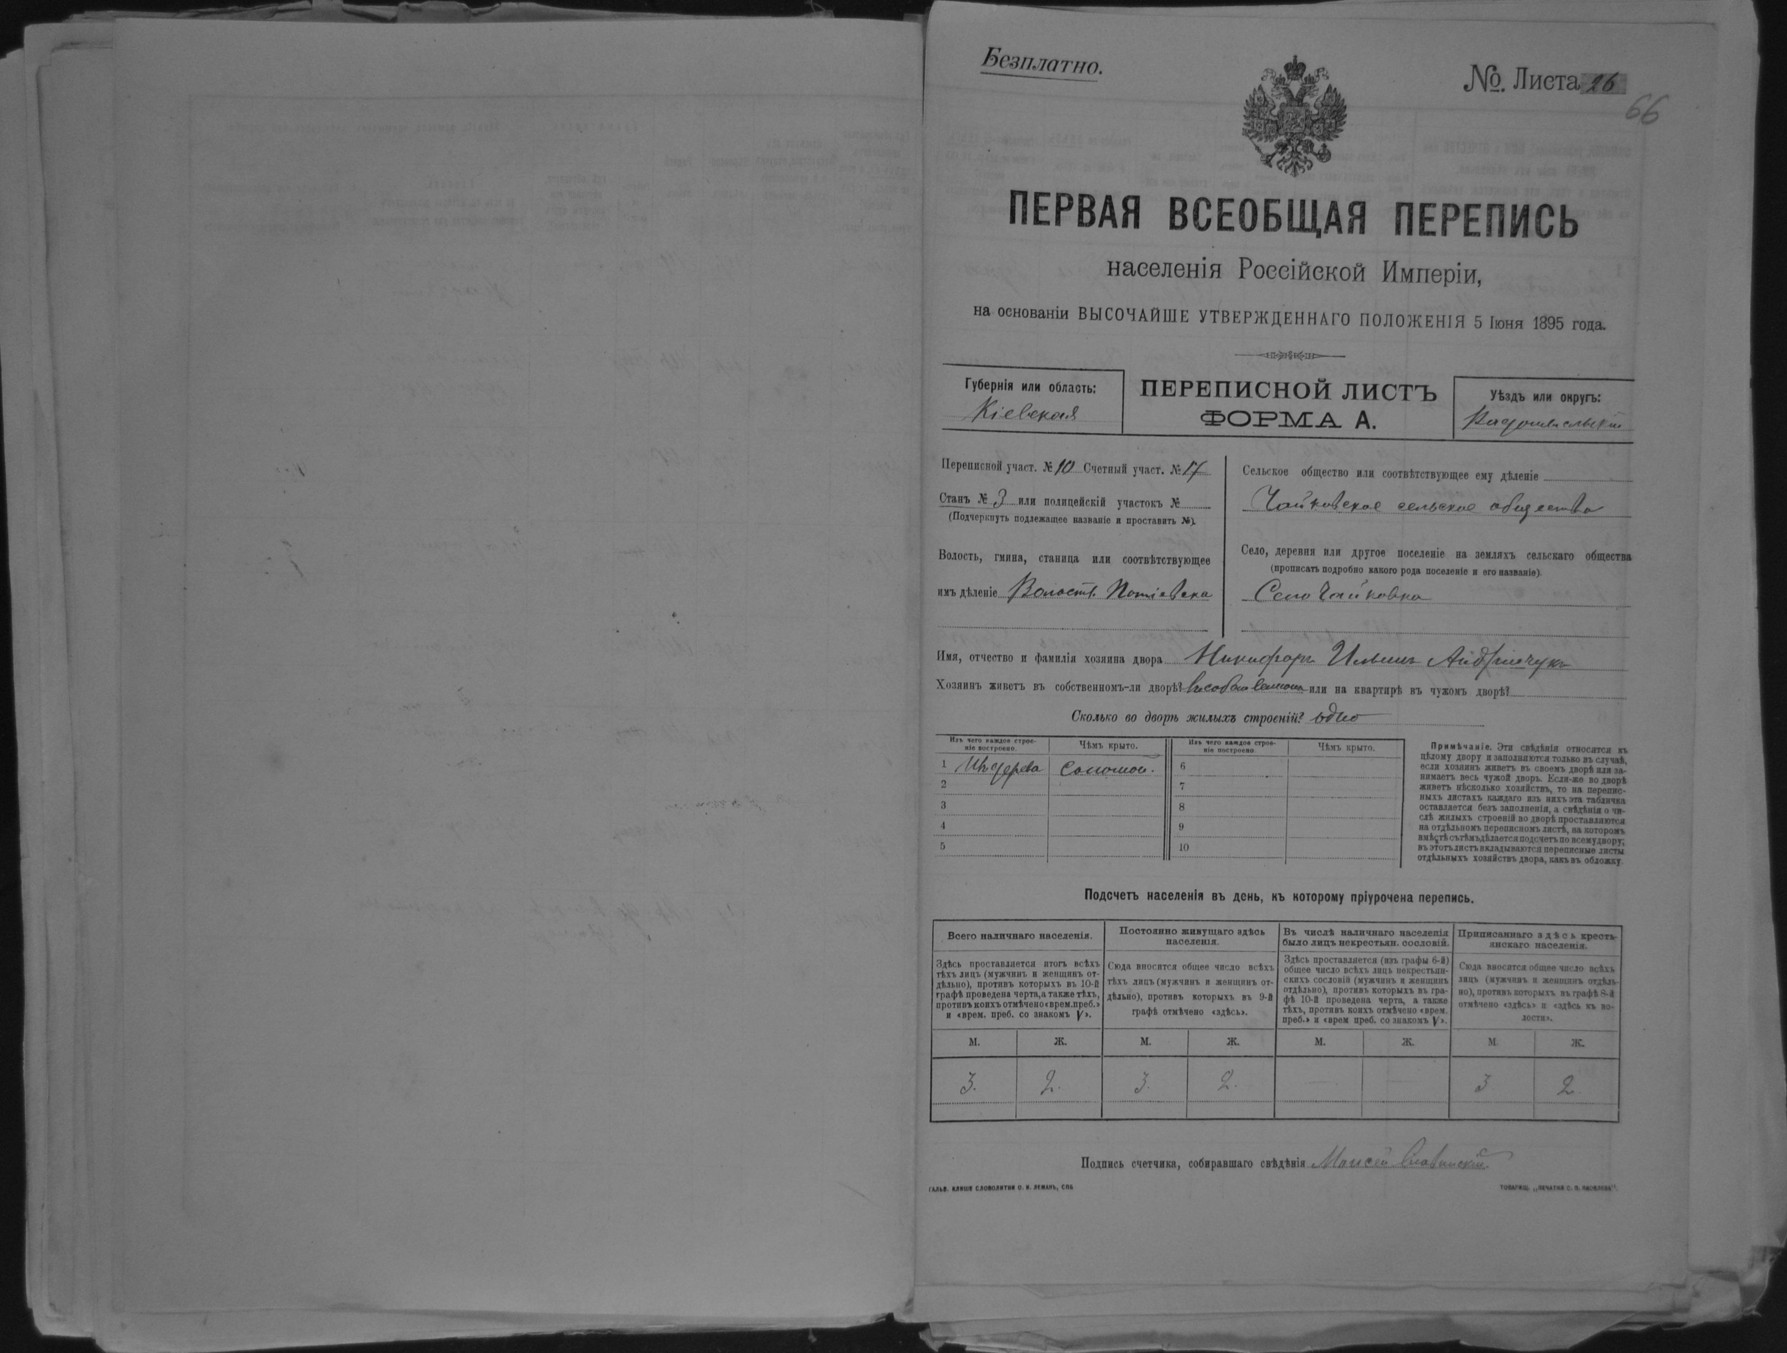 Безплатно.
№ Листа 26
66
ПЕРВАЯ ВСЕОБЩАЯ ПЕРЕПИСЬ
населенія Россійской Имперіи,
на основаніи ВЫСОЧАЙШЕ УТВЕРЖДЕННАГО ПОЛОЖЕНІЯ 5 Іюня 1895 года.
Губернія или область:
Кіевская
ПЕРЕПИСНОЙ ЛИСТЪ
ФОРМА А.
Уѣздъ или округъ:
Радомысльскій
Переписной участ. № 10 Счетный участ. № 17
Станъ № 3 или полицейскій участокъ №
(Подчеркнуть подлежащее названіе и проставить №).
Волость, гмина, станица или соотвѣтствующее
имъ дѣленіе Волость Потіевска
Сельское общество или соотвѣтствующее ему дѣленіе
Чайковское сельское общество
Село, деревня или другое поселеніе на земляхъ сельскаго общества
(прописать подробно какого рода поселеніе и его названіе).
Село Чайковка
Имя, отчество и фамилія хозяина двора Никифоръ Ильинъ Андрійчукъ
Хозяинъ живетъ въ собственномъ-ли дворѣ? или на квартирѣ въ чужомъ дворѣ?
Сколько во дворѣ жилыхъ строеній? одно
Изъ чего каждое строе-
ніе построено.
Чѣмъ крыто.
Изъ чего каждое строе-
ніе построено.
Чѣмъ крыто.
1 Изъ дерева соломой. 6
2 7
3 8
4 9
5 10
Примѣчаніе. Эти свѣдѣнія относятся къ
цѣлому двору и заполняются только въ случаѣ,
если хозяинъ живетъ въ своемъ дворѣ или за-
нимаетъ весь чужой дворъ. Если-же во дворѣ
живетъ нѣсколько хозяйствъ, то на перепис-
ныхъ листахъ каждаго изъ нихъ эта табличка
оставляется безъ заполненія, а свѣдѣнія о чи-
слѣ жилыхъ строеній во дворѣ проставляются
на отдѣльномъ переписномъ листѣ, на которомъ
вмѣстѣ съ тѣмъ дѣлается подсчетъ по всему двору;
въ этотъ листъ вкладываются переписные листы
отдѣльныхъ хозяйствъ двора, какъ въ обложку.
Подсчетъ населенія въ день, къ которому пріурочена перепись.
Всего наличнаго населенія.
Здѣсь проставляется итогъ всѣхъ
тѣхъ лицъ (мужчинъ и женщинъ от-
дѣльно), противъ которыхъ въ 10-й
графѣ проведена черта, а также тѣхъ,
противъ коихъ отмѣчено «врем. преб.»
и «врем. преб. со знакомъ V».
Постоянно живущаго здѣсь
населенія.
Сюда вносится общее число всѣхъ
тѣхъ лицъ (мужчинъ и женщинъ от-
дѣльно), противъ которыхъ въ 9-й
графѣ отмѣчено «здѣсь».
Въ числѣ наличнаго населенія
было лицъ некрестьян. сословій.
Здѣсь проставляется (изъ графы 6-й)
общее число всѣхъ лицъ некрестьян-
скихъ сословій (мужчинъ и женщинъ
отдѣльно), противъ которыхъ въ гра-
фѣ 10-й проведена черта, а также
тѣхъ, противъ коихъ отмѣчено «врем.
преб.» и «врем преб. со знакомъ V».
Приписаннаго здѣсь кресть-
янскаго населенія.
Сюда вносится общее число всѣхъ
лицъ (мужчинъ и женщинъ отдѣль-
но), противъ которыхъ въ графѣ 8-й
отмѣчено «здѣсь» и «здѣсь въ во-
лости».
М. Ж. М. Ж. М. Ж. М. Ж.
3. 2. 3. 2. 3 2
Подпись счетчика, собиравшаго свѣдѣнія Моисей Славинскій
ГАЛЬВ. КЛИШЕ СЛОВОЛИТНИ О. И. ЛЕМАНЪ, СПБ
ТОВАРИЩ. „ПЕЧАТНЯ С. П. ЯКОВЛЕВА".